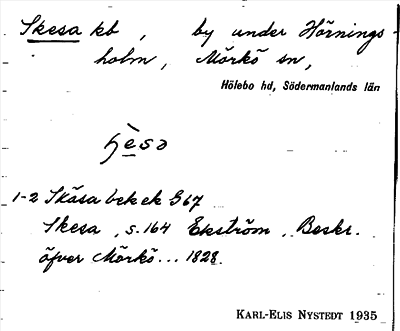 Skesa kb, by under Hörnings-
holm, Mörkö sn,
Hölebo hd, Södermanlands län
1-2 Skäsa bek ek G67
Skesa, s. 164 Ekström, Beskr.
öfver Mörkö... 1828.
KARL-ELIS NYSTEDT 1935